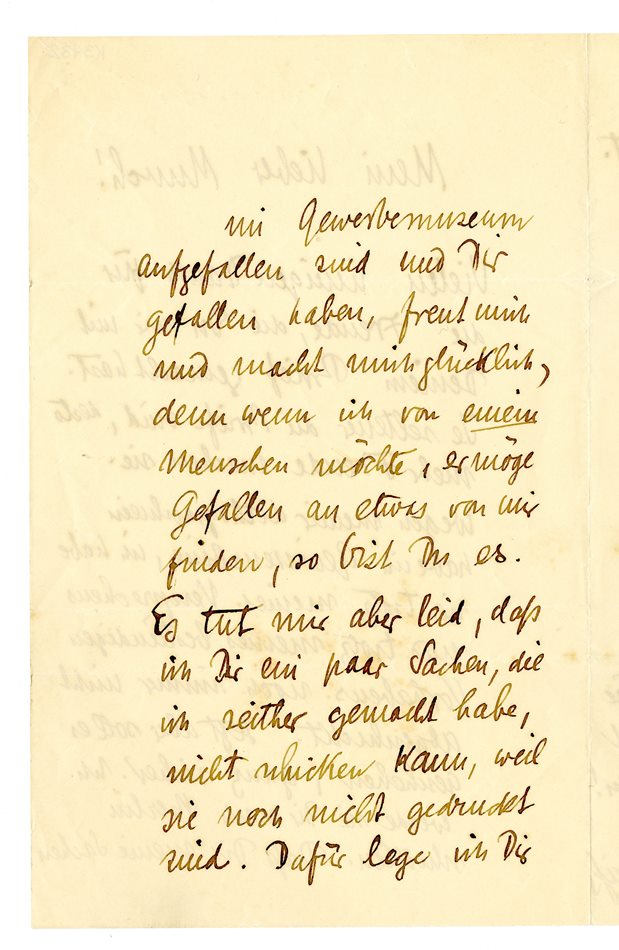 im Gewerbemuseum
aufgefallen sind und Dir
gefallen haben, freut mich
und macht mich glücklich,
denn wenn ich von einem
Menschen möchte, er möge
Gefallen an etwas von mir
finden, so bist Du es.
Es tut mir aber leid, daß
ich Dir ein paar Sachen, die
ich seither gemacht habe,
nicht schicken kann, weil
sie noch nicht gedruckt
sind. Dafür lege ich Dir